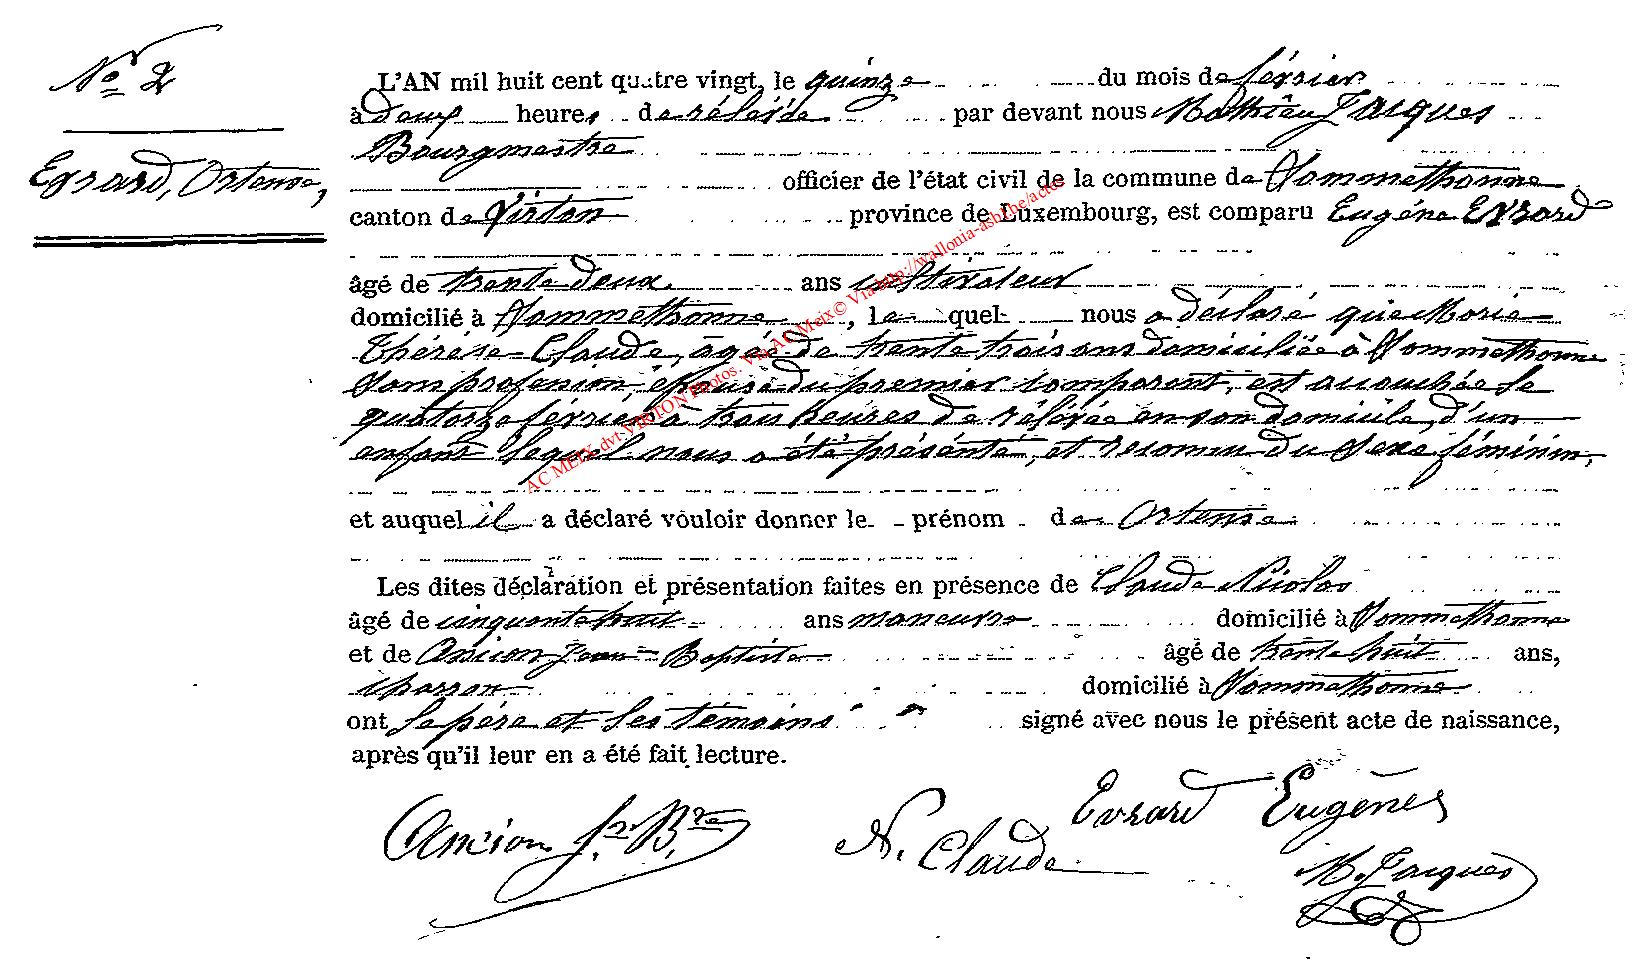 No 2
Evrard, Ortense,
L'AN mil huit cent quatre vingt, le quinze du mois de février
à deux heures de rélévée par devant nous Mathieu Jacques
Bourgmestre
officier de l'état civil de la commune de Sommethonne
canton de Virton province de Luxembourg, est comparu Eugéne Evrard
âgé de trente deux ans cultivateur
domicilié à Sommethonne, le quel nous a déclaré que Marie
Thérèse Claude, âgée de trente trois ans domiciliée à Sommethonne
sans profession, épouse du premier comparent, est accouchée le
quatorze février à trois heures de rélévée en son domicile, d'un
enfant lequel nous a été présenté, et reconnu du sexe féminin,
et auquel il a déclaré vouloir donner le prénom de Ortense
Les dites déclaration et présentation faites en présence de Claude Nicolas
âgé de cinquante huit ans maneuvre domicilié à Sommethonne
et de Ancion Jean-Baptiste âgé de trente huit ans,
charron domicilié à Sommethonne
ont le père et les témoins signé avec nous le présent acte de naissance,
après qu'il leur en a été fait lecture.
Evrard Eugène
Ancion J. Bte
N. Claude
M. Jacques
AC MEIX dvt VIRTON Photos. Via AC Meix © Via http://wallonia-asbl.be/actes